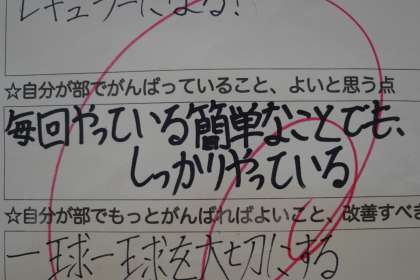 レギュラーになる!
☆自分が部でがんばっていること、よいと思う点
毎回やっている簡単なことでも、
しっかりやっている
☆自分が部でもっとがんばればよいこと、改善すべき
一球一球を大切にする